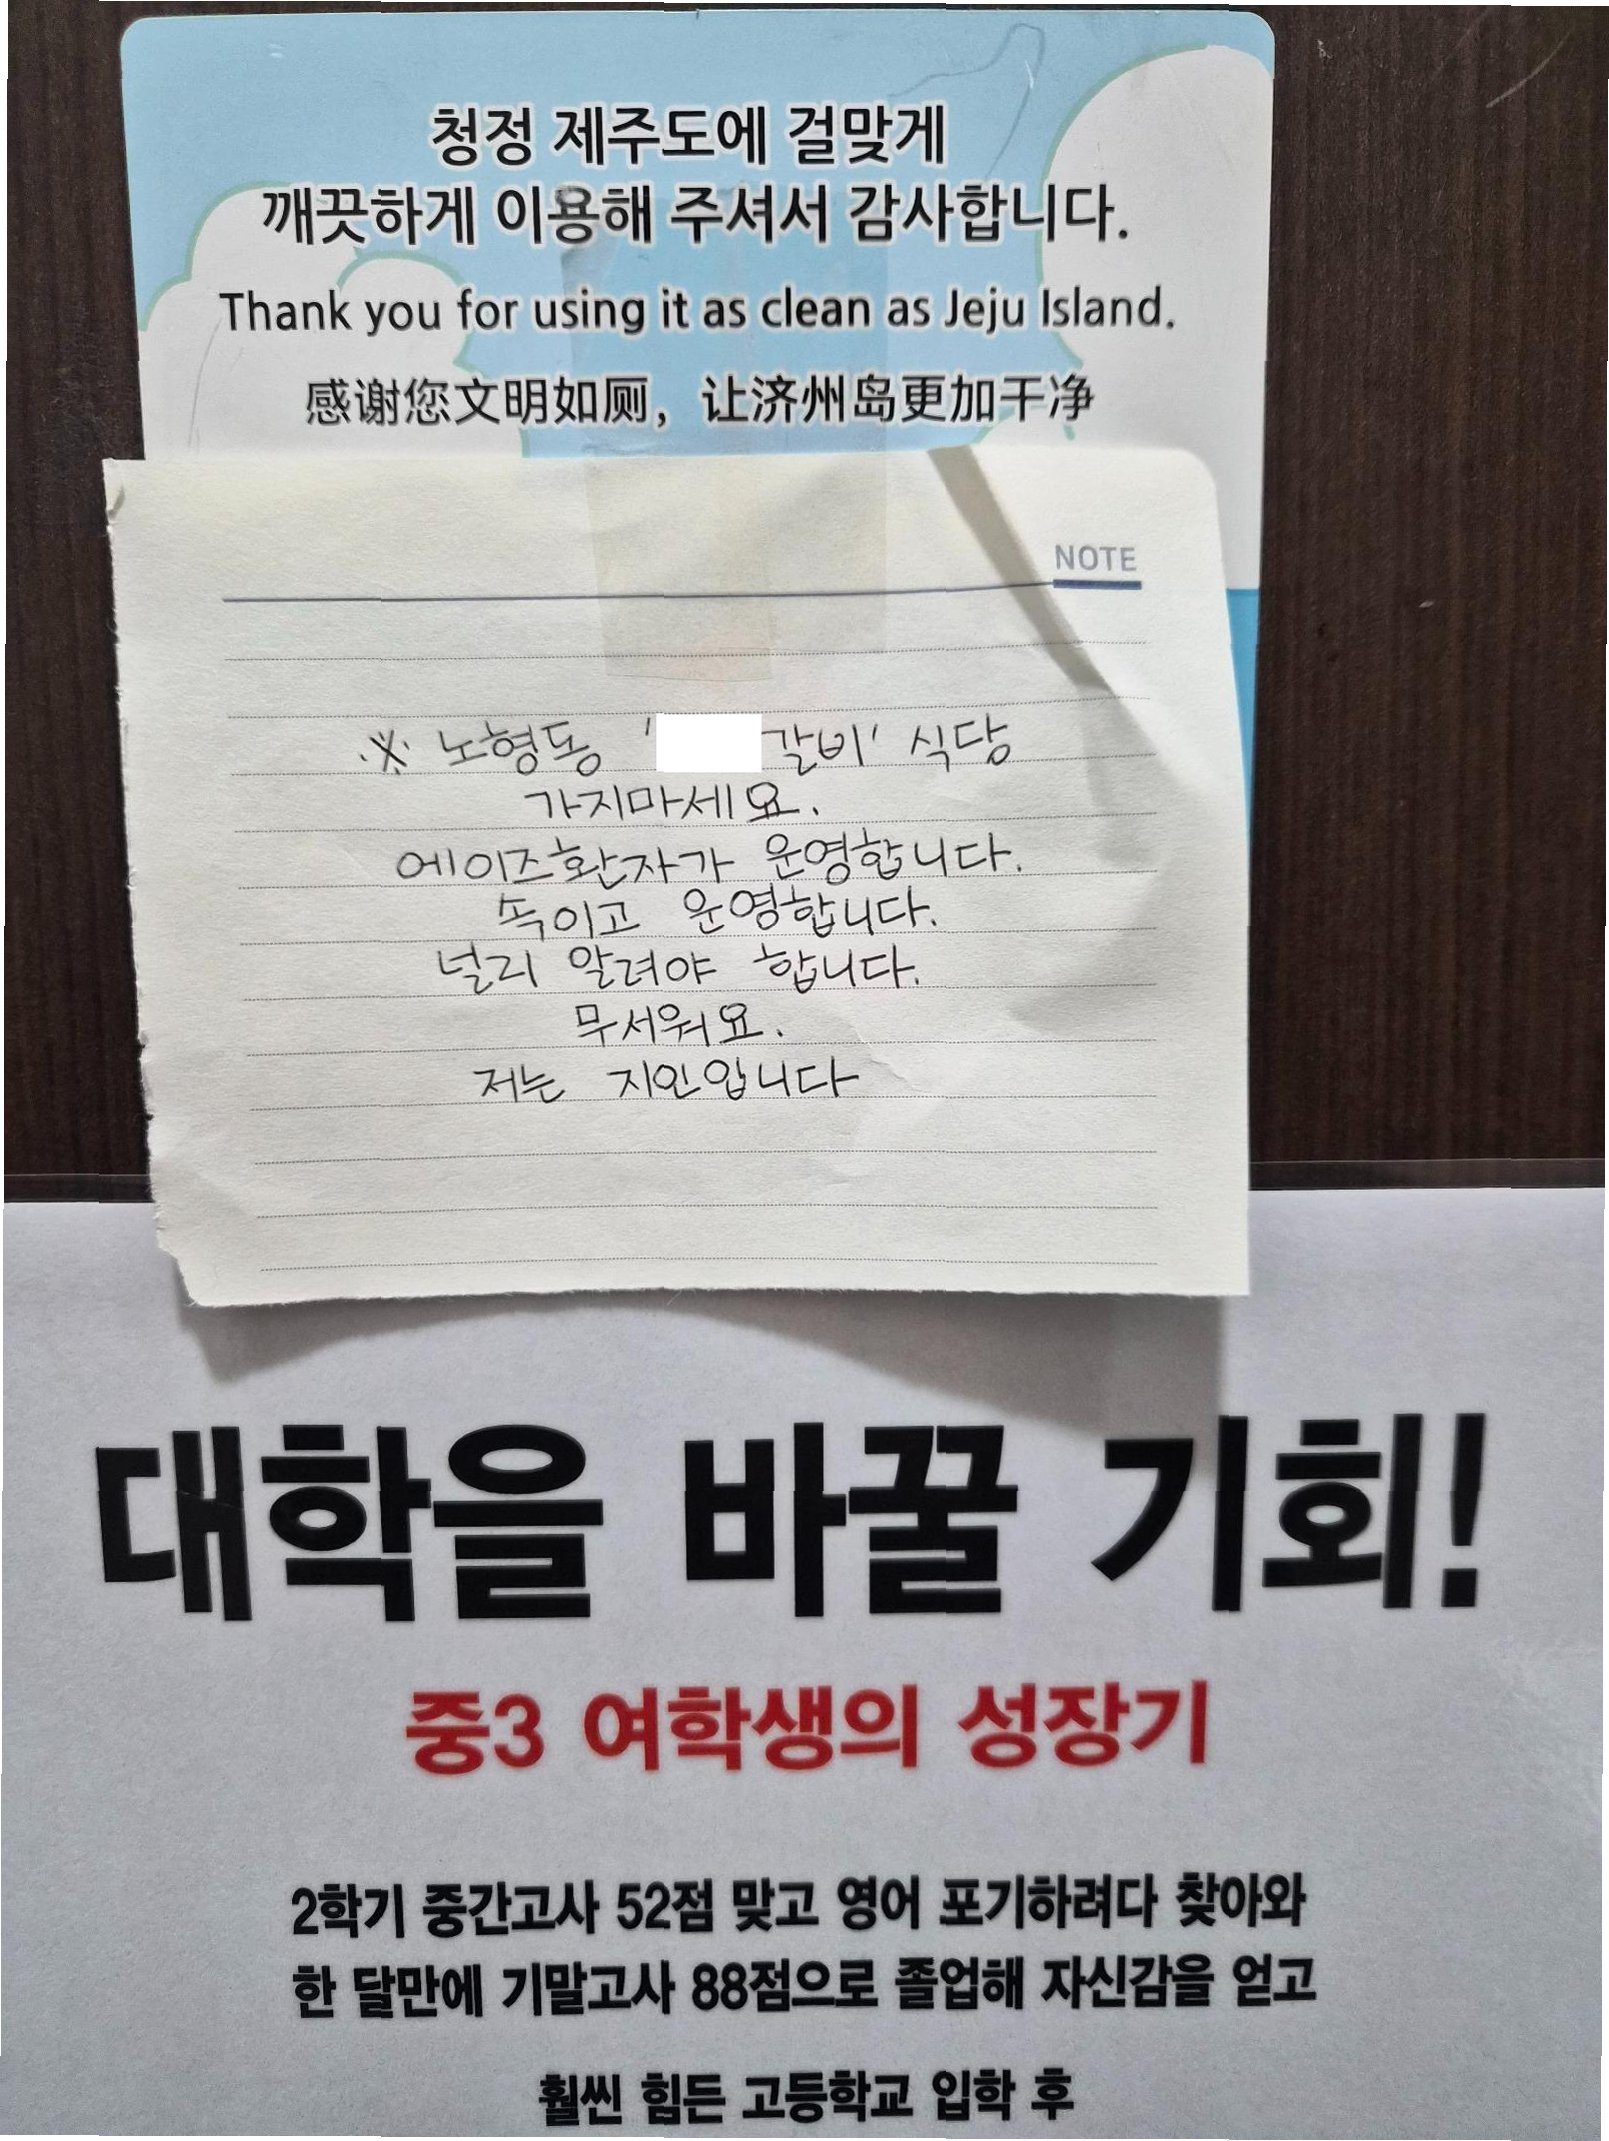 청정 제주도에 걸맞게
깨끗하게 이용해 주셔서 감사합니다.
Thank you for using it as clean as Jeju Island.
感谢您文明如厕，让济州岛更加干净
NOTE
※ 노형동 '갈비' 식당
가지마세요.
에이즈환자가 운영합니다.
속이고 운영합니다.
널리 알려야 합니다.
무서워요.
저는 지인입니다
대학을 바꿀 기회!
중3 여학생의 성장기
2학기 중간고사 52점 맞고 영어 포기하려다 찾아와
한 달만에 기말고사 88점으로 졸업해 자신감을 얻고
훨씬 힘든 고등학교 입학 후